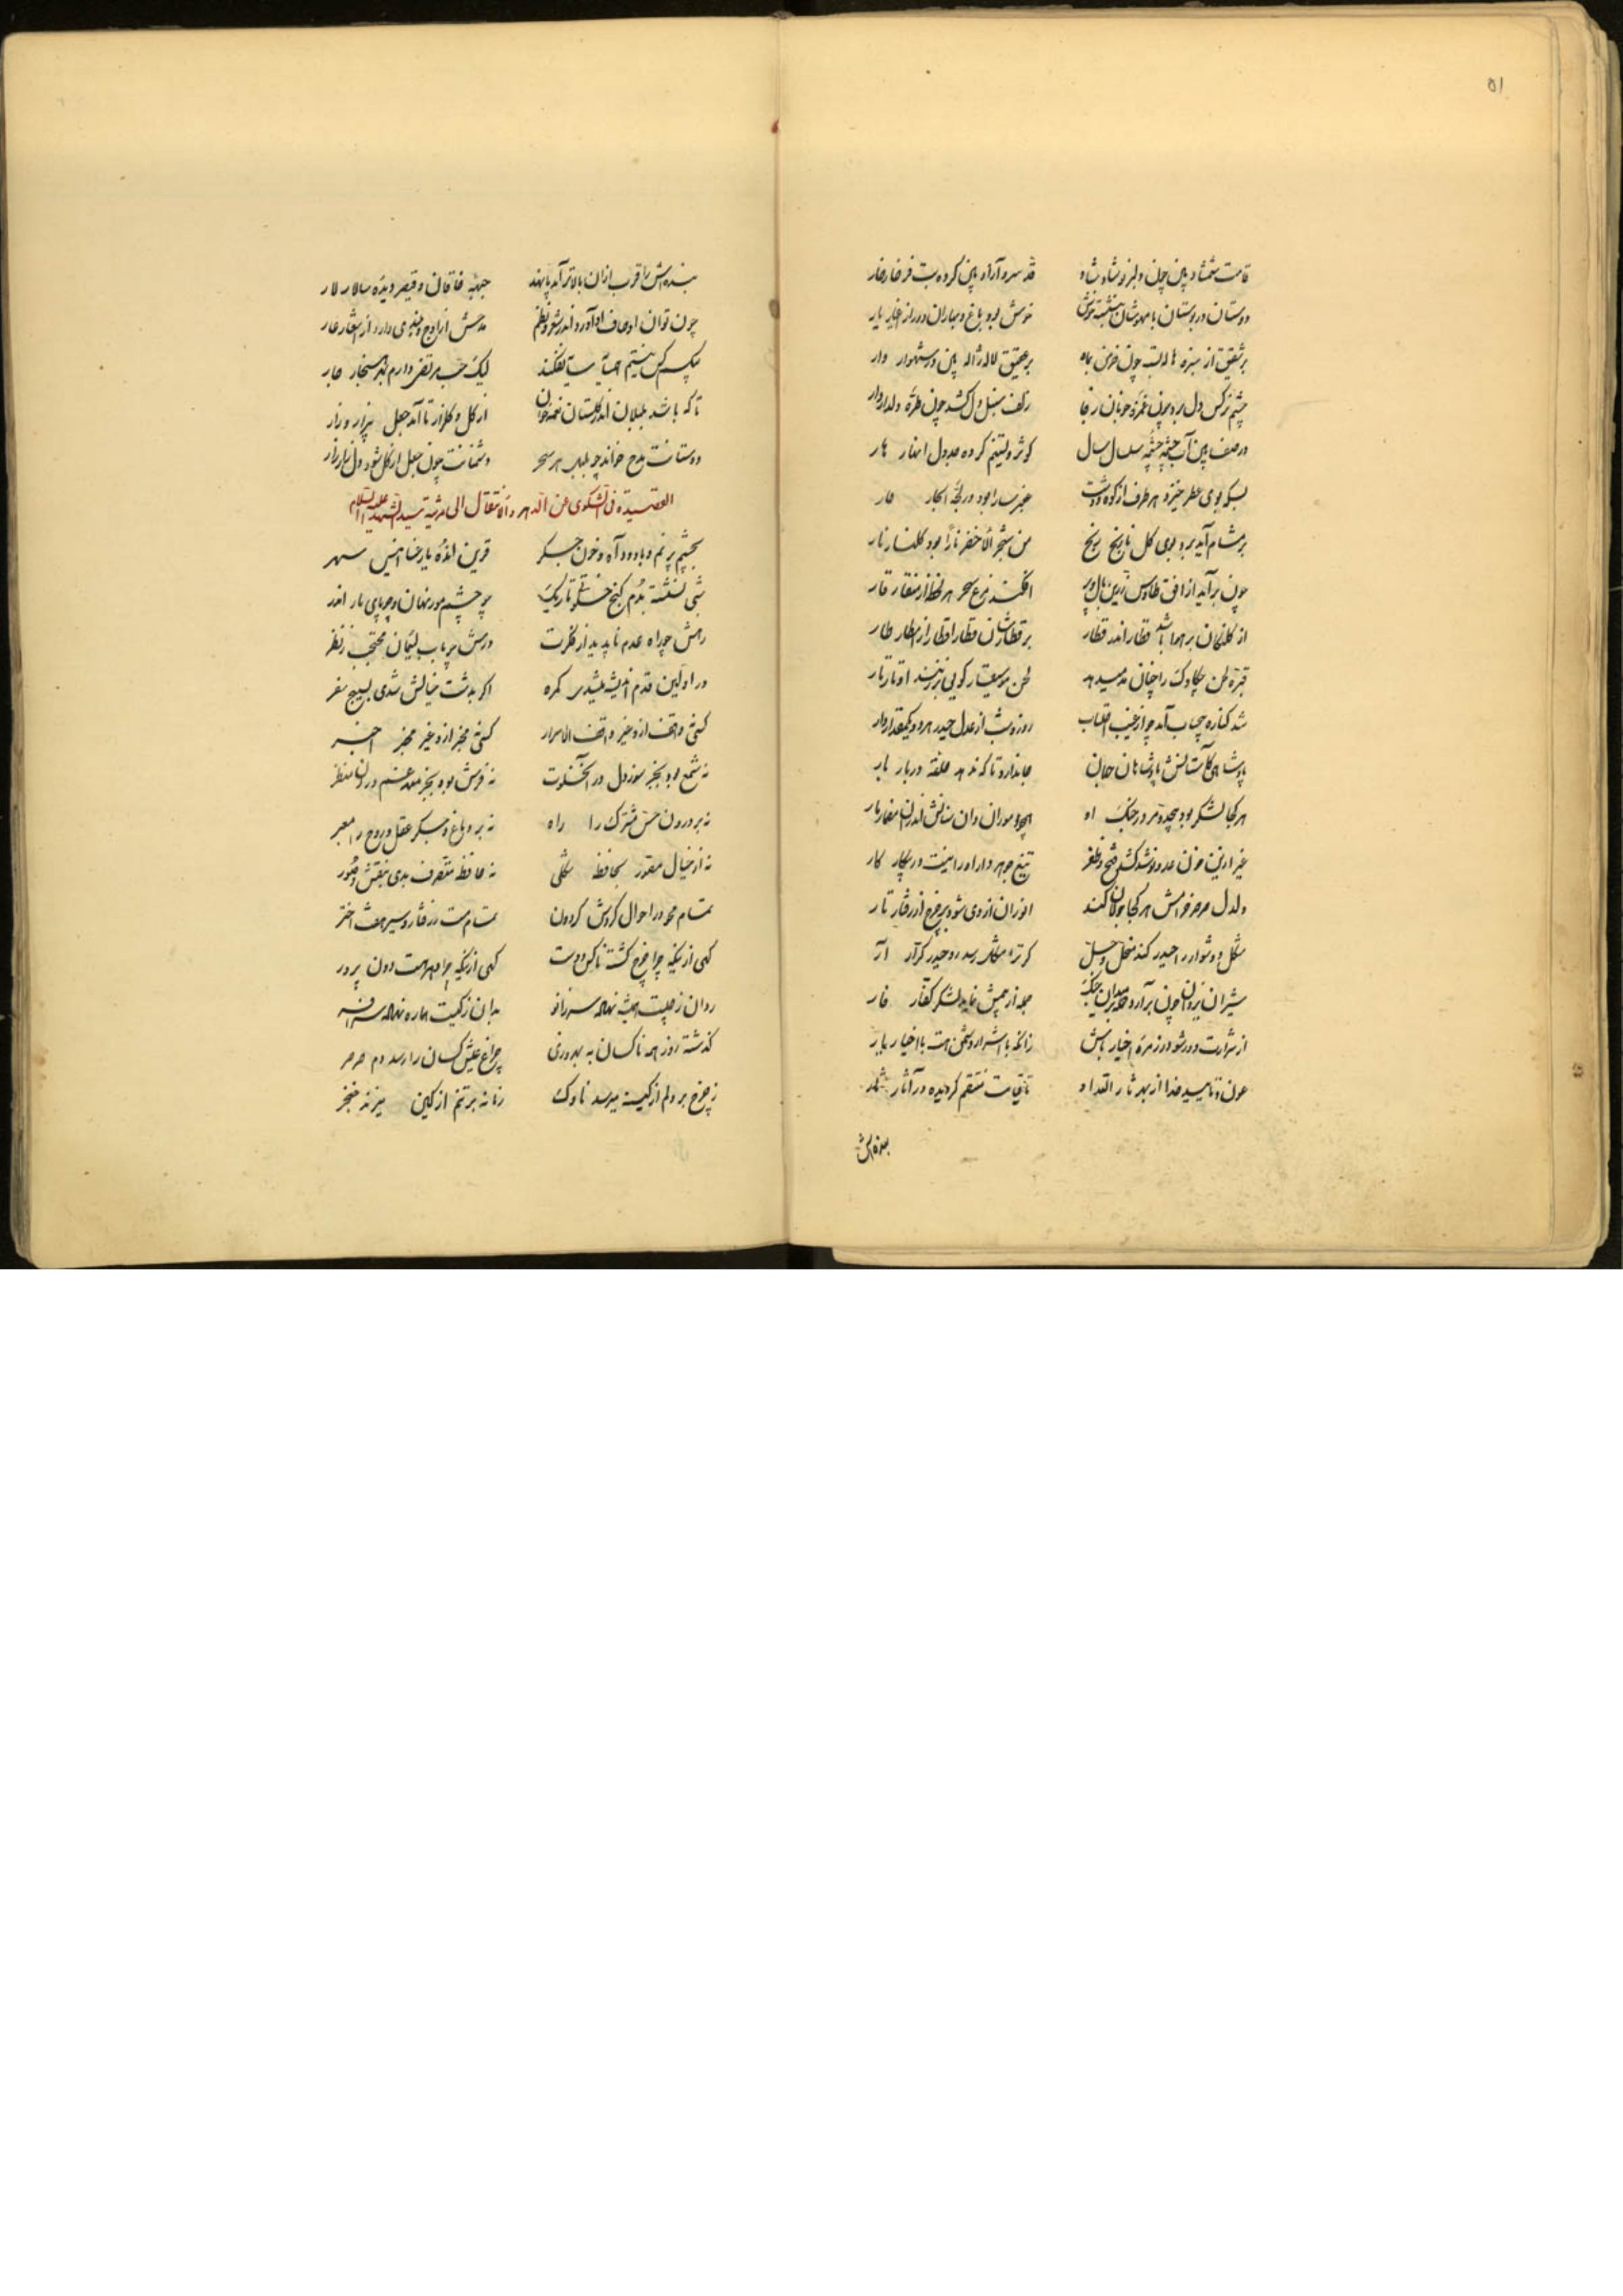 ۵۱
قامت شمشاد بین چون دلبر نوشاد شاد قد سرو آزاد بین کرده بت فرخار خار
دوستان در بوستان با مهوشان بنشسته خوش خوش بود باغ و بهاران دور از اغیار یار
بر شقیق از سبزه هاله بسته چون خرمن بماه بر عقیق لاله ژاله بین در شهوار وار
چشم نرگس دل برد چون غمزه خوبان رعنا زلف سنبل دل کشد چون طره دلدار دار
در صف بین آب چشمه چشمه سلسال سال کوثر و تسنیم کرده جدول انهار هار
بسکه بوی عطر خیزد هر طرف از کوه و دشت عنبر سارا بود در لجه ابحار حار
بر مشام آید برد بوی گل نارنج رنج من شجر الاخضر نارا بود گلنار نار
چون برآید از افق طاوس زرین بال و پر افکند مرغ سحر هر لحظه از منقار قار
از کلنگان بر هوا باشد قطار اندر قطار بر قطارشان قطار اقطار از امطار طار
قبره لحن چکاوک را چنان مد میدهد لحن موسیقار گویی بر زنند اوتار تار
شد کناره چپ آمد چو از غیب انقلاب روز و شب از عدل حیدر هر دو یکمقدار دار
پادشاهی کآستانش پادشاهان جهان جا ندارد تا که ندهد حلقه دربار بار
هر کجا لشکر بود بیحد و مر در جنگ او همچو موران دان سنانش اندران مضمار مار
غیر ازین خون عدو نوشد کشد فتح و ظفر تیغ جوهردار او را نیست در پیکار کار
دلدل صرصر خرامش هر کجا جولان کند انوران از وی شود بر چرخ از رفتار تار
مشکل و دشوار را حیدر کند منحل و حل گر ترا مشکل رسد رو حیدر کرار آر
شیران یزدان چون برآرد حمله در میدان جنگ جمله از پیش نماید لشکر کفار فار
از شرارت دور شو در زمره اخیار باش زانکه با اشرار دشمن هست با اخیار یار
عون و تایید خدا از بهر ثار اقتدا و تا قیامت منتقم گردیده در آثار ثار
بنده‌اش
بنده‌اش را قرب ازان بالاتر آمد پا نهد جبهه خاقان و قیصر دیده سالار لار
چون توان اوصاف او آورد اندر شعر و نظم مدحش از اوج بلندی دارد از اشعار عار
لیک حب مرتضی دارم
تا که باشد بلبلان اندر گلستان نغمه‌خوان از گل و گلزار تا آمد جعل بیزار و زار
دوستانت مدح خواند چو بلبل هر سحر دشمنانت چون جعل از گل شود دل زار زار
القصیدة فی الشکوی عن الدهر و الانتقال الی مرثیة سید الشهدا علیه السلام
بچشم پر نم و با دود آه و خون جگر قرین انده یار عنا انیس سهر
شبی نشسته بدم کنج خلوتی تاریک چو چشم مور نهان و چو پای مار اندر
رهش چو راه عدم ناپدید از فکرت درش چو باب سلیمان محتجب ز نظر
در اولین قدم اندیشه میشدی گمره اگر بدشت خیالش شدی بسیج سفر
کسی واقف ازو غیر واقف الاسرار کسی مخبر ازو غیر مخبر اخبر
نه شمع بود بجز سوز دل در آنخلوت نه فرش بود بجز مقدم در آن منظر
نه بر درون حس مشترک را راه نه بر دماغ و جگر عقل و روح را معبر
نه از خیال مصور بحافظه شکلی نه حافظه متصرف بدی بنقش و صور
تمام محو در احوال گردش گردون تمام مست ز رفتار و سیر هفت اختر
گهی ازینکه چرا چرخ گشته ناکس دوست گهی ازینکه چرا دهر هست دون پرور
روان ز چیست همیشه نهاده سر زانو بدان ز کیست هماره نهاده سر افسر
گذشته روز همه ناکسان به بهروزی چراغ عیش کسان را رسد دم صرصر
ز چرخ بر دلم از کینه میرسد ناوک زمانه بر تنم از کین میزند خنجر